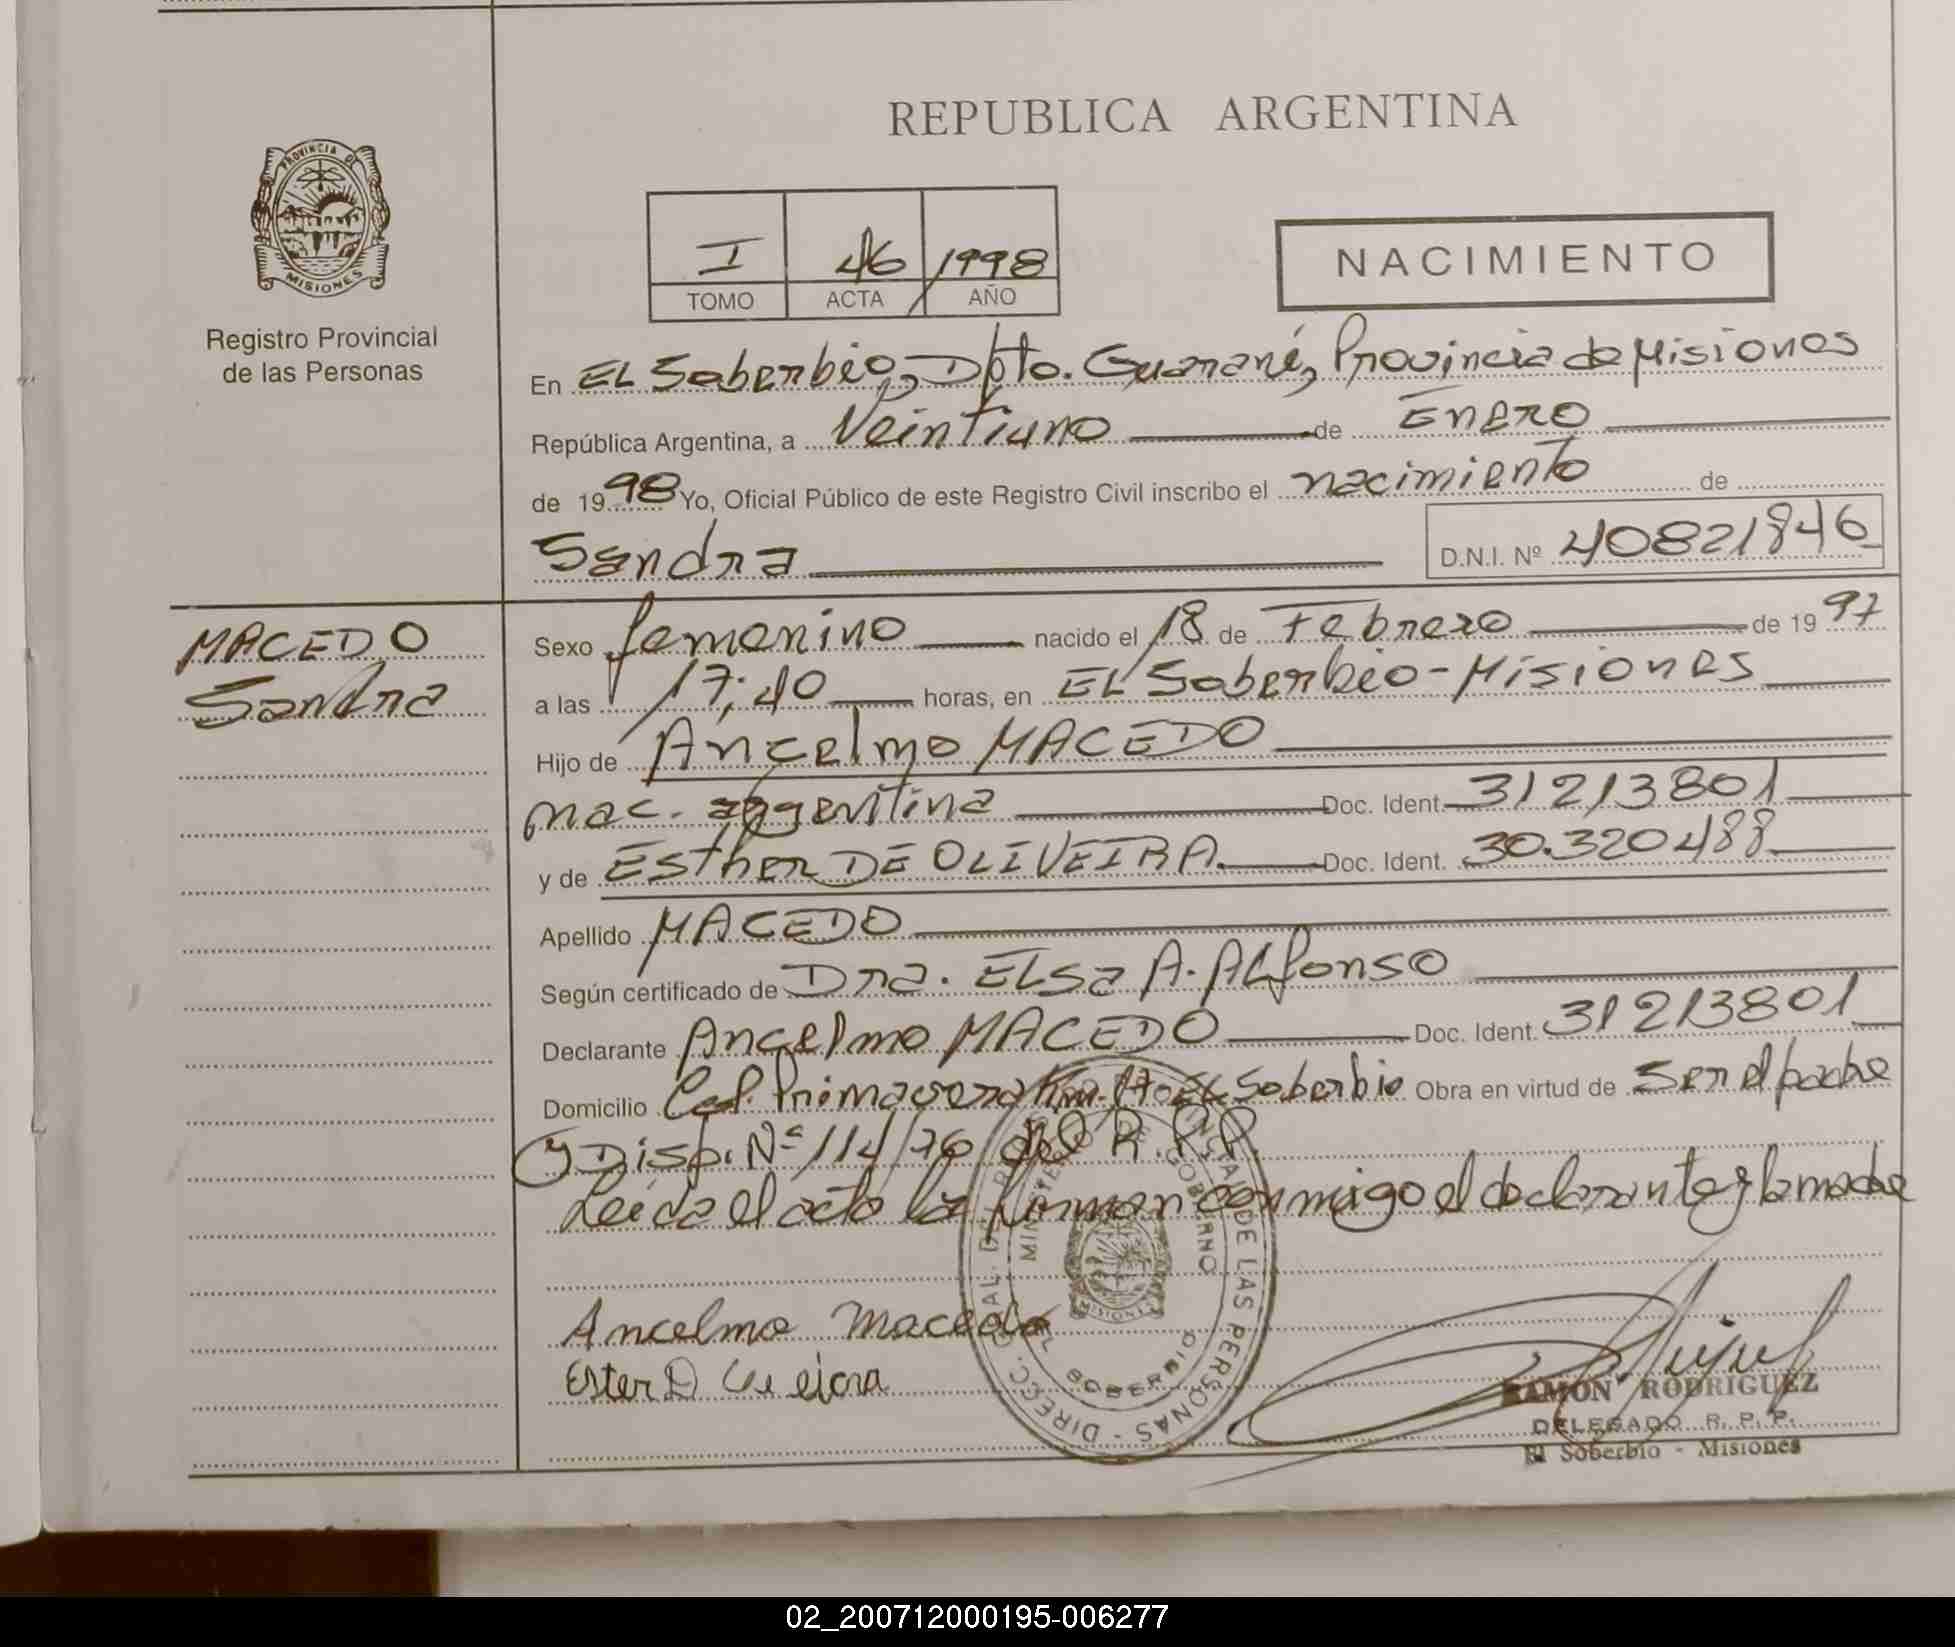 REPUBLICA ARGENTINA
PROVINCIA DE
MISIONES
Registro Provincial
de las Personas
I 46 1998
TOMO ACTA AÑO
NACIMIENTO
En EL Soberbio, Dpto. Guaraní, Provincia de Misiones
República Argentina, a Veintiuno de Enero
de 1998 Yo, Oficial Público de este Registro Civil inscribo el nacimiento de
Sandra D.N.I. Nº 40821846
MACEDO
Sandra
Sexo femenino nacido el 18 de Febrero de 1997
a las 17;40 horas, en EL Soberbio - Misiones
Hijo de Ancelmo MACEDO
nac. argentina Doc. Ident. 31213801
y de Esther DE OLIVEIRA. Doc. Ident. 30.320488
Apellido MACEDO
Según certificado de Dra. ELsa A. ALfonso
Declarante Ancelmo MACEDO Doc. Ident. 31213801
Domicilio Col. Primavera Km. EL Soberbio Obra en virtud de ser el padre
y Disp. Nº 114/76 del R.P.P.
Leída el acta la firman conmigo el declarante y la madre
Ancelmo Macedo
Ester D
RAMON RODRIGUEZ
DELEGADO R. P. P.
El Soberbio - Misiones
DIRECC. GRAL. DEL DE LAS PERSONAS
MINISTERIO DE GOBIERNO
EL SOBERBIO
MISIONES
02_200712000195-006277